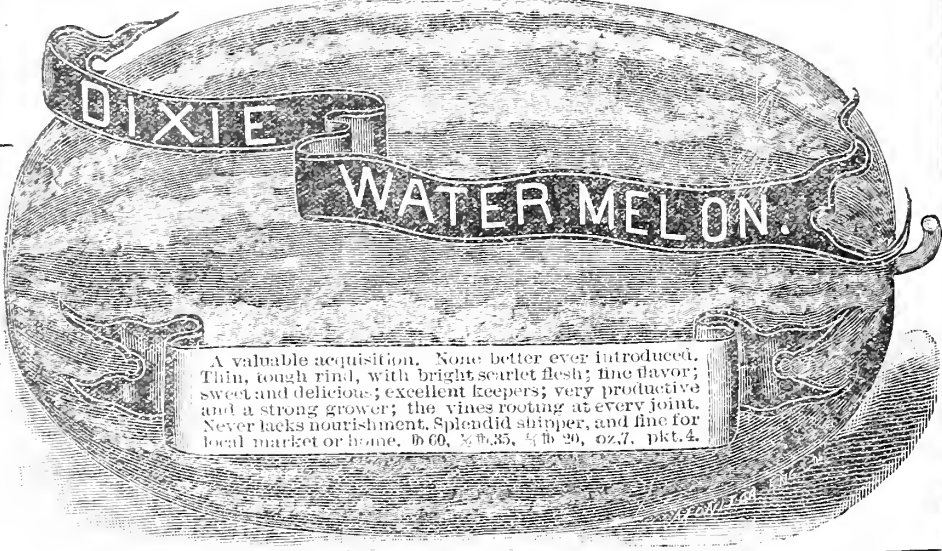 DIXIE
WATER MELON.
A valuable acquisition. None better ever introduced.
Thin, tough rind, with bright scarlet flesh; fine flavor;
sweet and delicious; excellent keepers; very productive
and a strong grower; the vines rooting at every joint.
Never lacks nourishment. Splendid shipper, and fine for
local market or home. lb 60, ½ lb. 35, ¼ lb 20, oz. 7. pkt. 4.